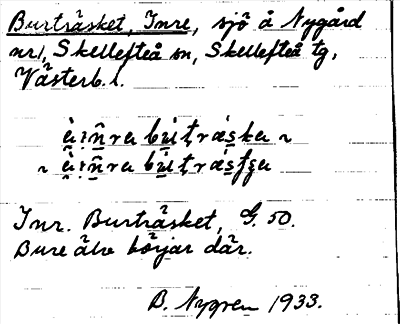 Burträsket, Inre, sjö å Nygård
nr 1, Skellefteå sn, Skellefteå tg,
Västerb. l.
Inr. Burträsket, G. 50.
Bure älv börjar där.
B. Nygren 1933.